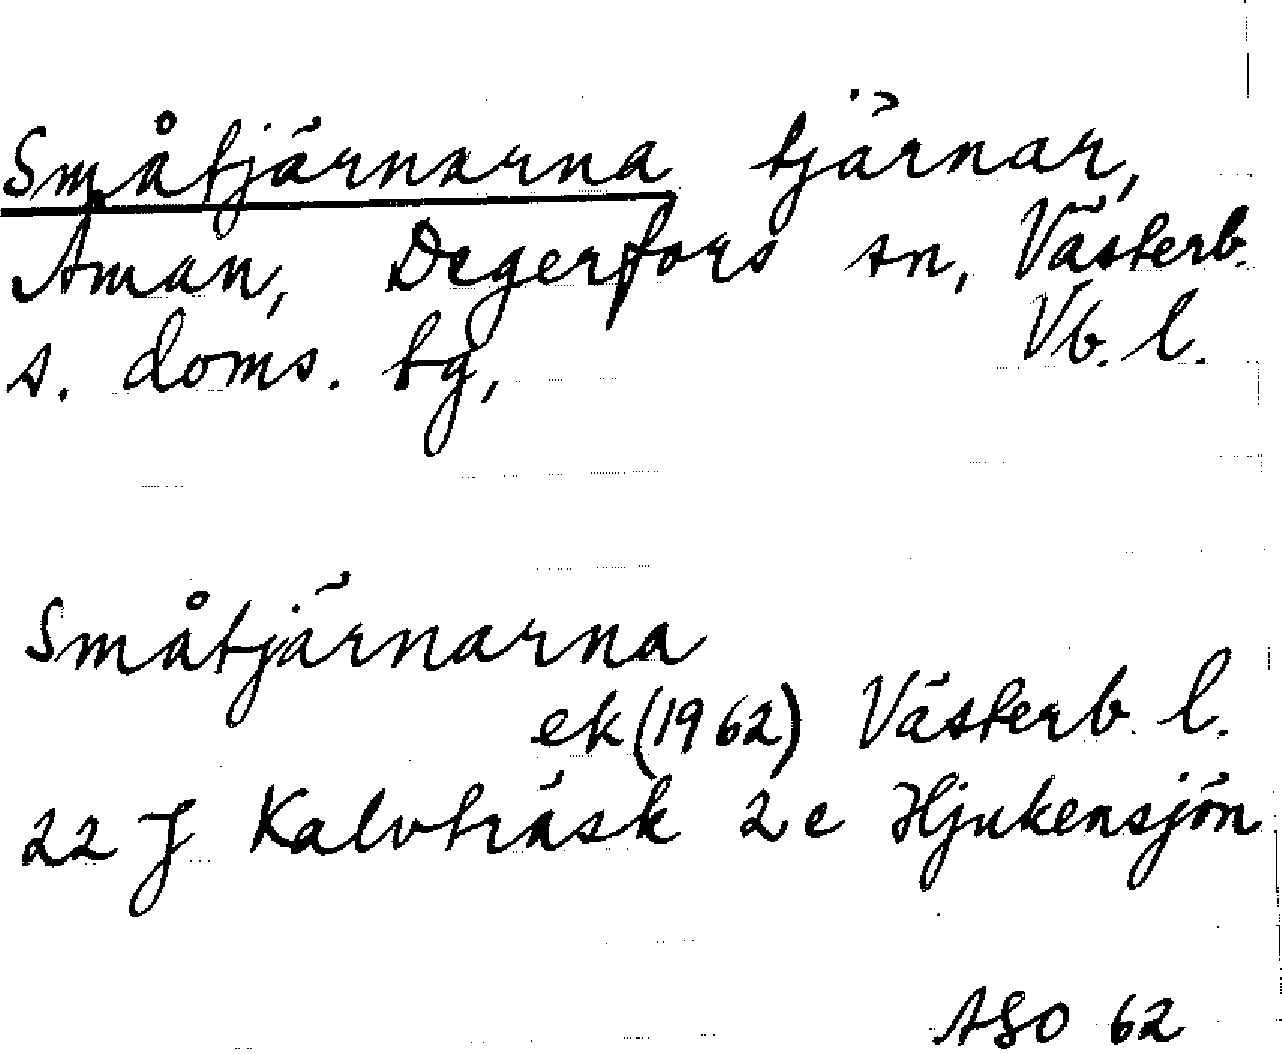 Småtjärnarna tjärnar,
Åman, Degerfors sn, Västerb.
s. doms. tg, Vb. l.
Småtjärnarna
ek (1962) Västerb. l.
22 J Kalvträsk 2 e Hjukensjön
ASO 62